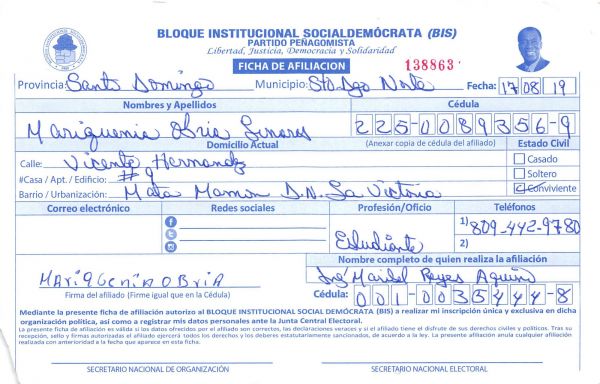 BLOQUE INSTITUCIONAL SOCIALDEMÓCRATA (BIS)
PARTIDO PEÑAGOMISTA
Libertad, Justicia, Democracia y Solidaridad
FICHA DE AFILIACION 138863
Provincia: Santo Domingo Municipio: Sto Dgo Norte Fecha: 17 08 19
Nombres y Apellidos Cédula
Mariquenia Obria Linares 225-0089356-9
Domicilio Actual (Anexar copia de cédula del afiliado) Estado Civil
Calle: Vicente Hernandez Casado
#Casa / Apt. / Edificio: #9 Soltero
Barrio / Urbanización: Mata Mamon D.N. La Victoria Conviviente
Correo electrónico Redes sociales Profesión/Oficio Teléfonos
Estudiante 1) 809-442-9780
2)
Nombre completo de quien realiza la afiliación
MAriqueniA OBriA Ing. Maribel Reyes Aquino
Firma del afiliado (Firme igual que en la Cédula) Cédula: 001-0035444-8
Mediante la presente ficha de afiliación autorizo al BLOQUE INSTITUCIONAL SOCIAL DEMÓCRATA (BIS) a realizar mi inscripción única y exclusiva en dicha
organización política, así como a registrar mis datos personales ante la Junta Central Electoral.
La presente ficha de afiliación es válida si los datos ofrecidos por el afiliado son correctos, las declaraciones veraces y si el afiliado tiene el disfrute de sus derechos civiles y políticos. Tras su
recepción, sello y firmas autorizadas el afiliado ejercerá todos los derechos y los deberes estatutariamente sancionados, de acuerdo a la ley. La presente afiliación anula cualquier afiliación
realizada con anterioridad a la fecha que aparece en esta ficha.
SECRETARIO NACIONAL DE ORGANIZACIÓN SECRETARIO NACIONAL ELECTORAL